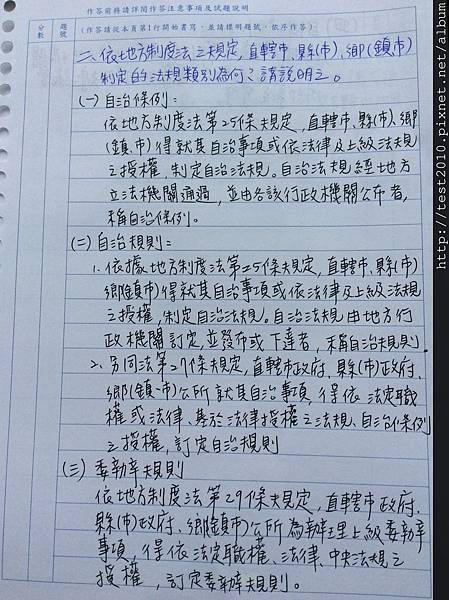 作答前請詳閱作答注意事項及試題說明
分數
題號
(作答請從本頁第1行開始書寫，並請標明題號，依序作答)
二、依地方制度法之規定，直轄市、縣(市)、鄉(鎮市)
制定的法規類別為何？請說明之。
(一)自治條例：
依地方制度法第25條規定，直轄市、縣(市)、鄉
(鎮、市)得就其自治事項或依法律及上級法規
之授權，制定自治法規。自治法規經地方
立法機關通過，並由各該行政機關公布者，
稱自治條例。
(二)自治規則：
1.依據地方制度法第25條規定，直轄市、縣(市)
鄉(鎮市)得就其自治事項或依法律及上級法規
之授權，制定自治法規。自治法規由地方行
政機關訂定，並發布或下達者，稱自治規則
2.另同法第27條規定，直轄市政府、縣(市)政府、
鄉(鎮、市)公所就其自治事項，得依法定職
權或法律、基於法律授權之法規、自治條例
之授權，訂定自治規則
(三)委辦規則
依地方制度法第29條規定，直轄市政府、
縣(市)政府、鄉(鎮市)公所為辦理上級委辦
事項，得依法定職權、法律、中央法規之
授權，訂定委辦規則。
http://test2010.pixnet.net/album